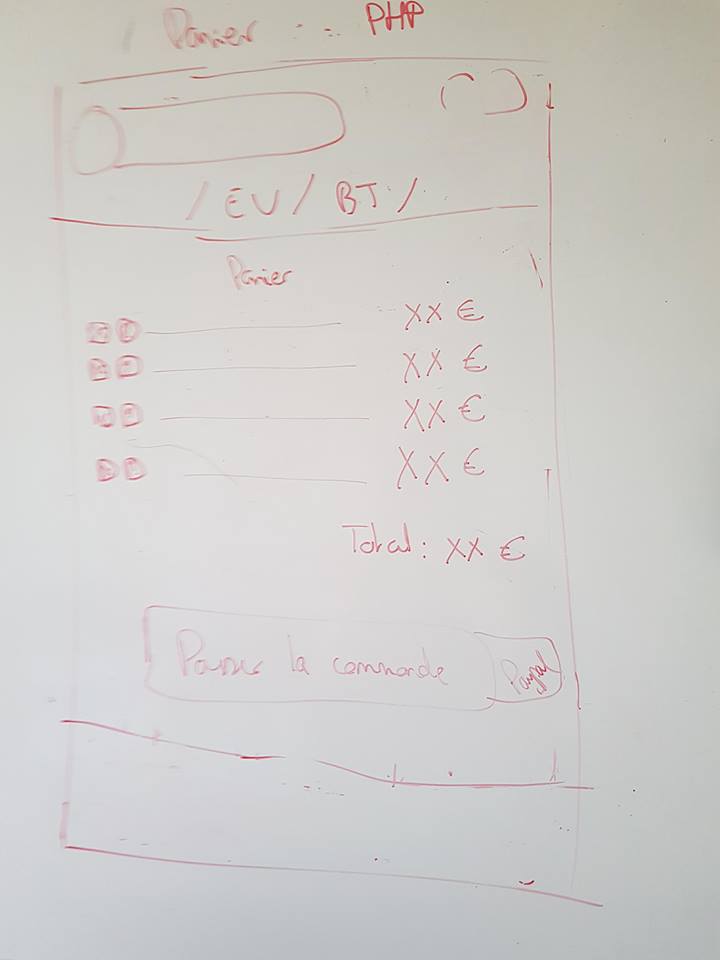 Panier : PHP
/ EV / BT /
Panier
XX €
XX €
XX €
XX €
Total : XX €
Passer la commande
Paypal